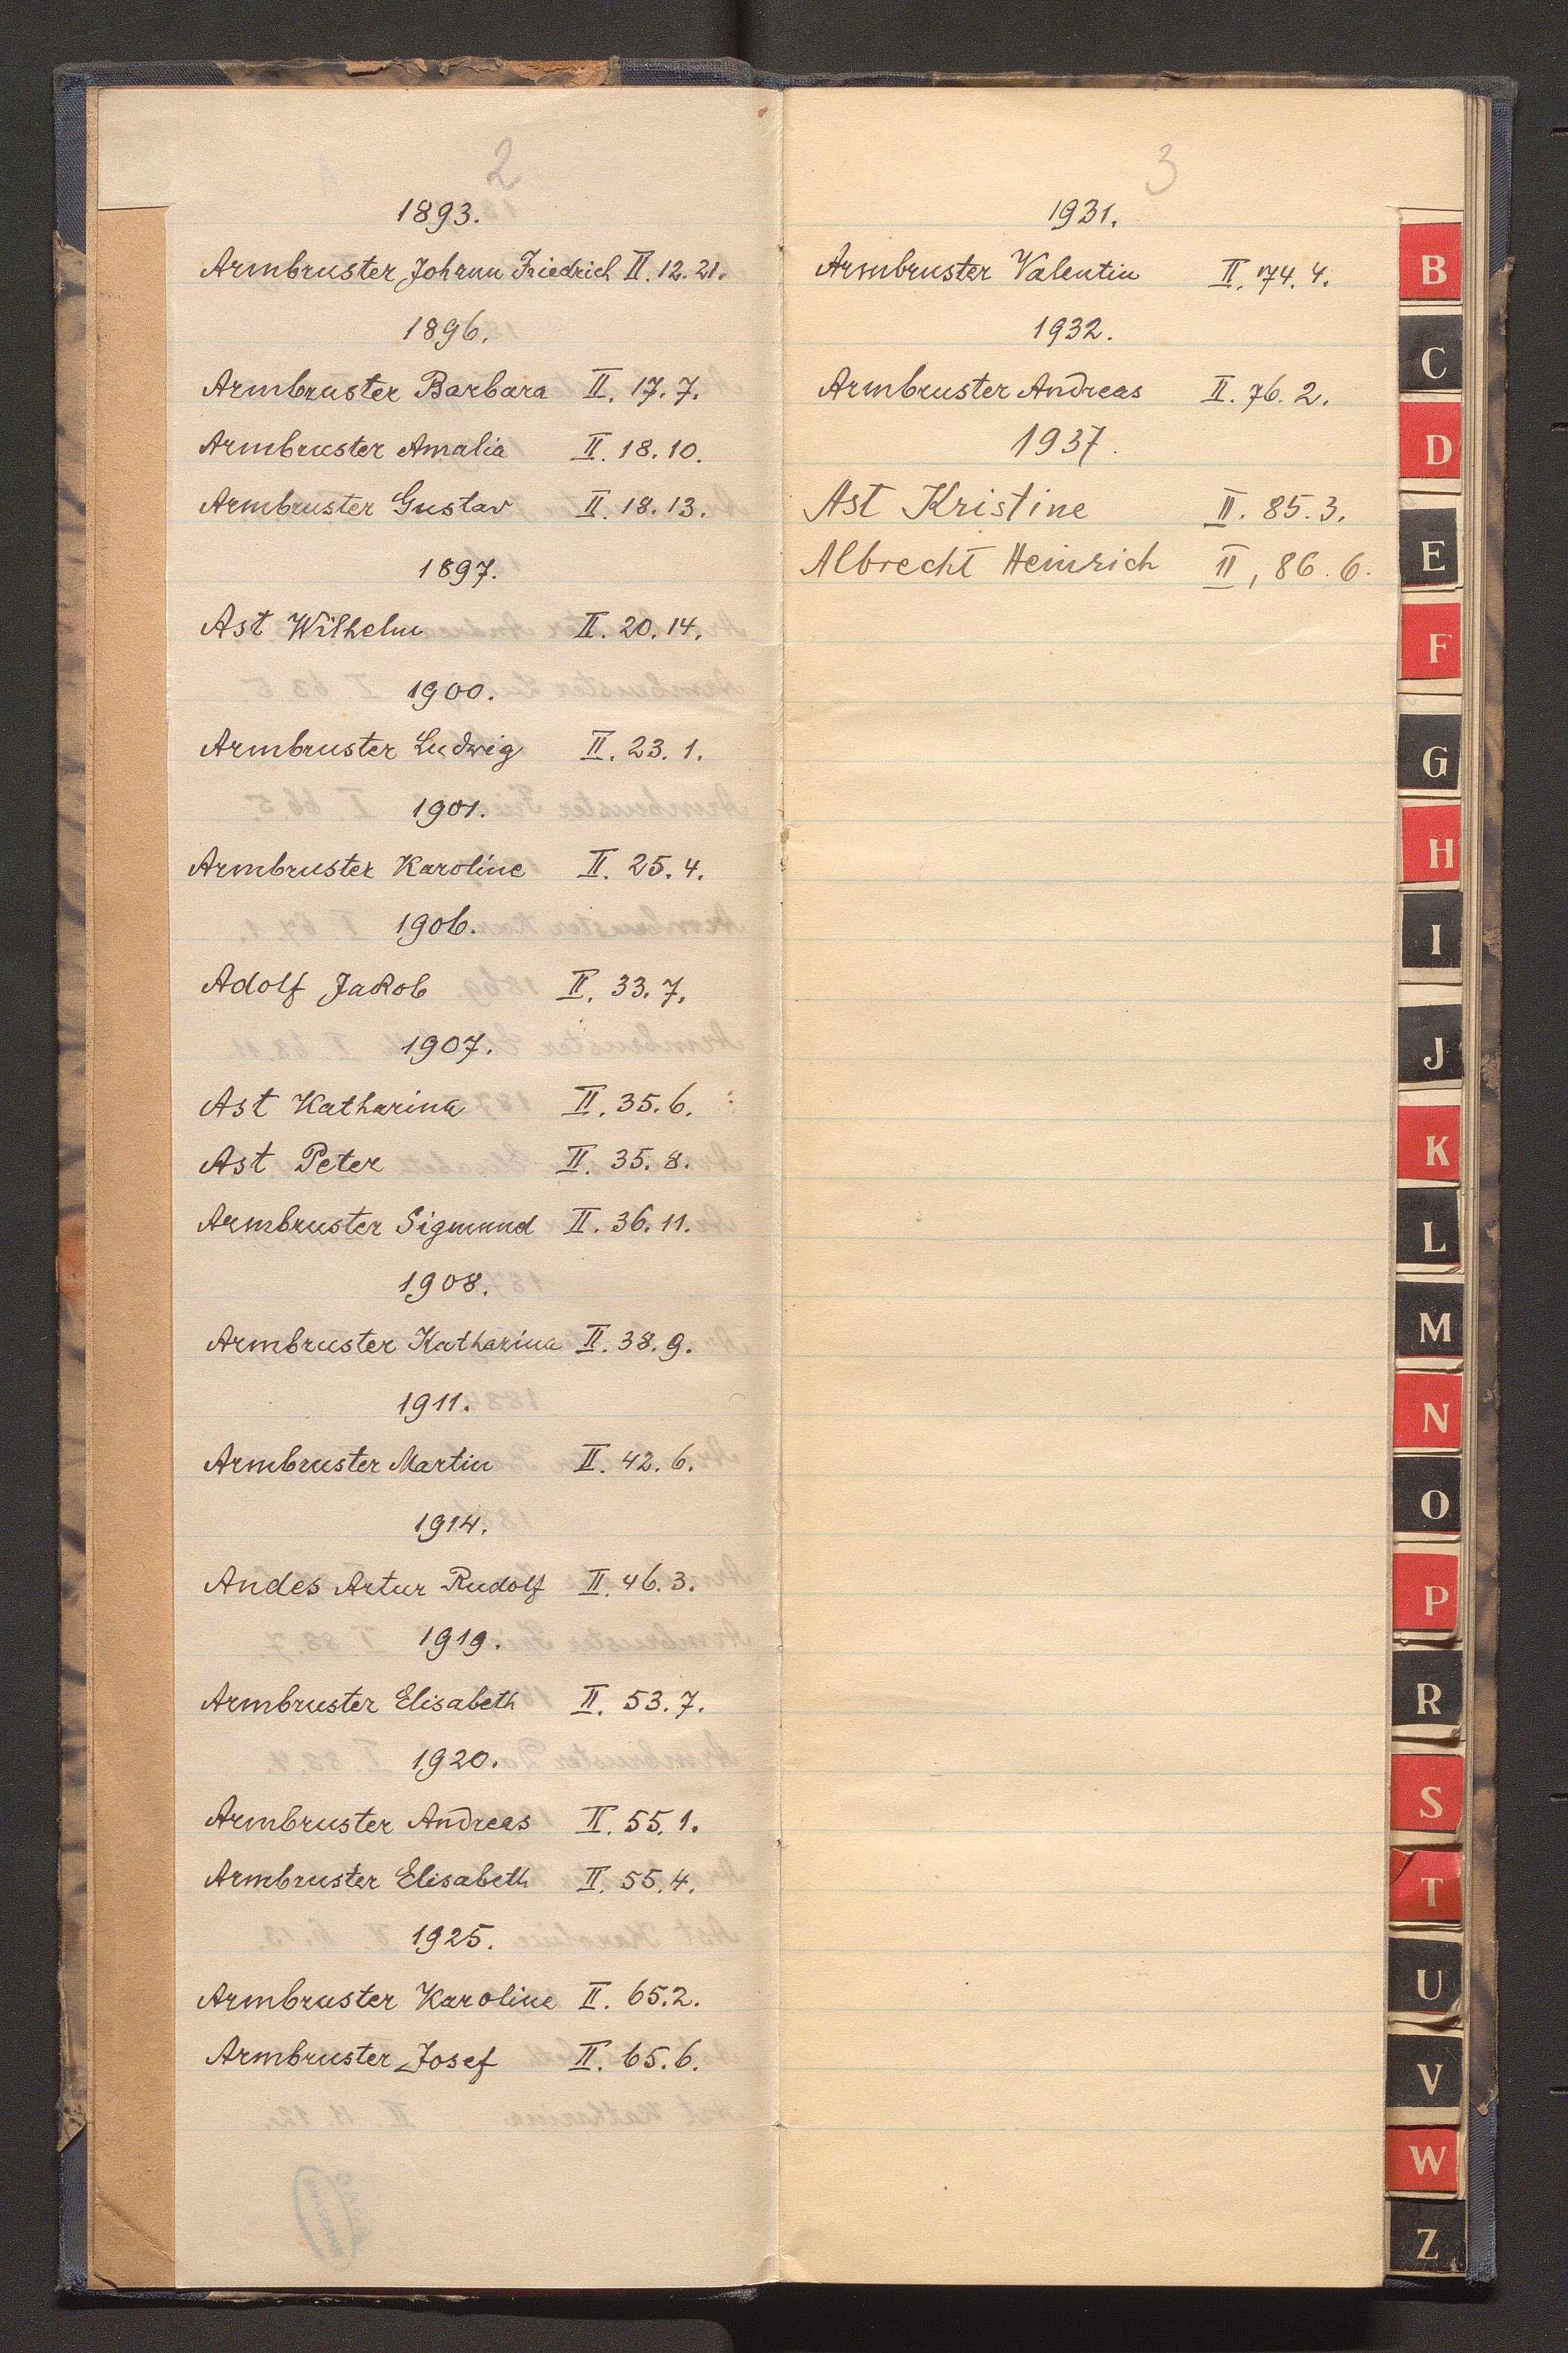 2
1893.
Armbruster Johann Friedrich II. 12. 21.
1896.
Armbruster Barbara II. 17. 7.
Armbruster Amalia II. 18. 10.
Armbruster Gustav II. 18. 13.
1897.
Ast Wilhelm II. 20. 14.
1900.
Armbruster Ludwig II. 23. 1.
1901.
Armbruster Karoline II. 25. 4.
1906.
Adolf Jakob II. 33. 7.
1907.
Ast Katharina II. 35. 6.
Ast Peter II. 35. 8.
Armbruster Sigmund II. 36. 11.
1908.
Armbruster Katharina II. 38. 9.
1911.
Armbruster Martin II. 42. 6.
1914.
Andes Artur Rudolf II. 46. 3.
1919.
Armbruster Elisabeth II. 53. 7.
1920.
Armbruster Andreas II. 55. 1.
Armbruster Elisabeth II. 55. 4.
1925.
Armbruster Karoline II. 65. 2.
Armbruster Josef II. 65. 6.
3
1931.
Armbruster Valentin II. 74. 4.
1932.
Armbruster Andreas II. 76. 2.
1937.
Ast Kristine II. 85. 3.
Albrecht Heinrich II, 86. 6.
B
C
D
E
F
G
H
I
J
K
L
M
N
O
P
R
S
T
U
V
W
Z